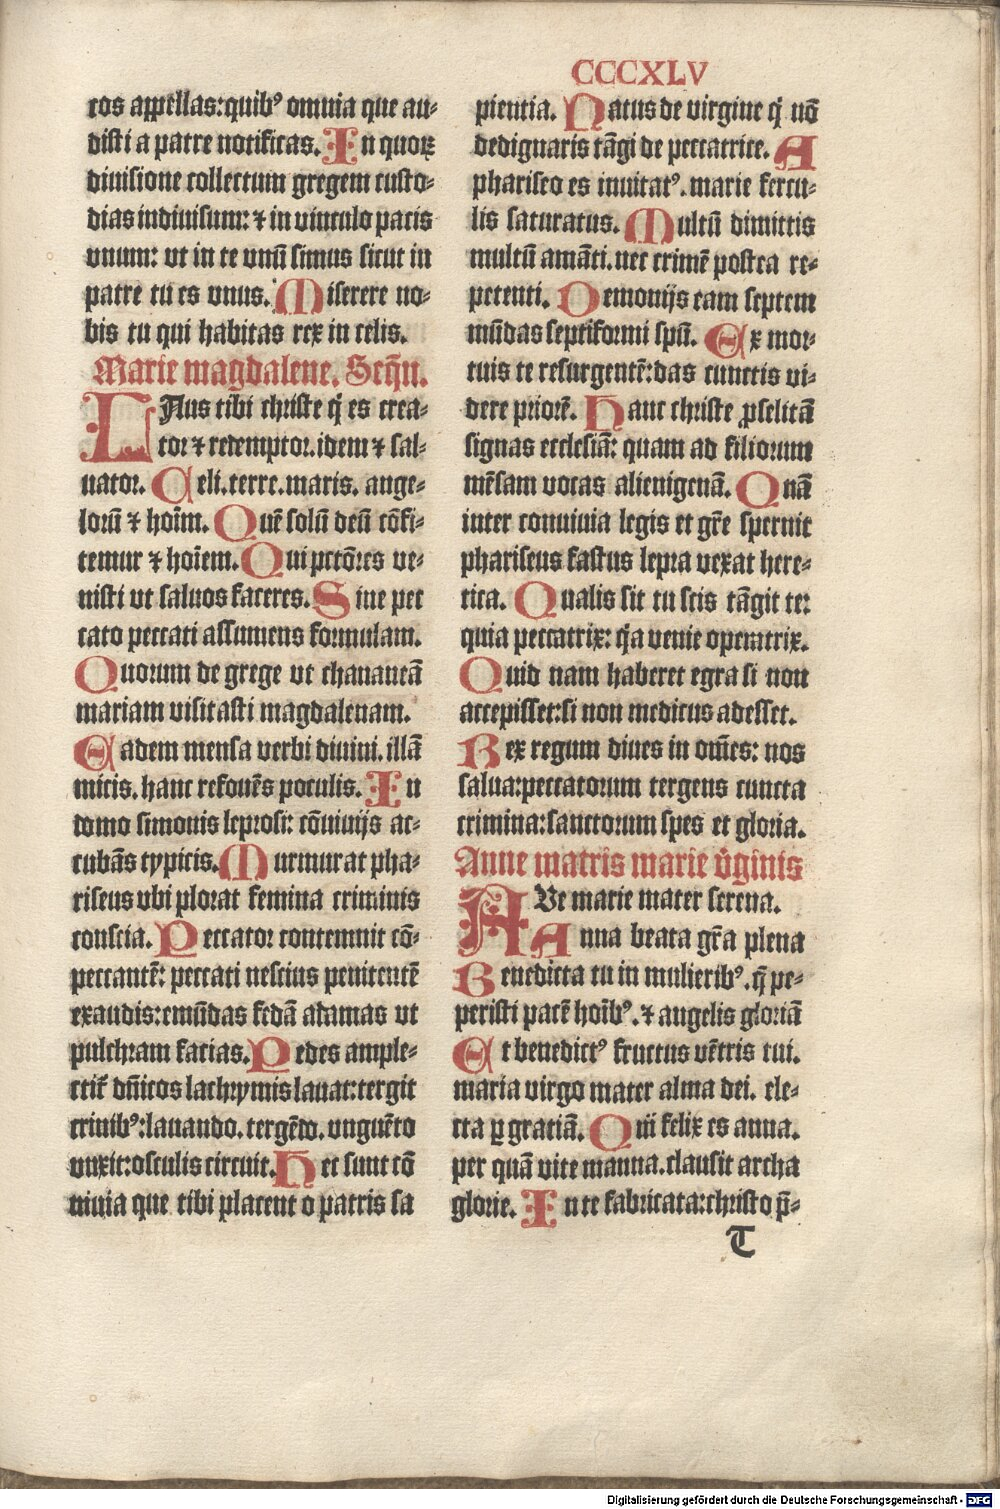 CCCXLV
cos appellas:quibꝰ omnia que au⸗
disti a patre notificas. In quoꝝ
diuisione collectum gregem custo⸗
dias indiuisum: ⁊ in vinculo pacis
vnum: vt in te vnū simus sicut in
patre tu es vnus. Miserere no⸗
bis tu qui habitas rex in celis.
Marie magdalene. Seq̄n.
LAus tibi christe q̇ es crea⸗
tor ⁊ redemptor.idem ⁊ sal⸗
uator. Celi.terre.maris. ange⸗
lorū ⁊ hoīm. Quē solū deū cōfi⸗
temur ⁊ hoīem. Qui pctōres ve⸗
nisti vt saluos faceres. Sine pec
cato peccati assumens formulam.
Quorum de grege vt chananeā
mariam visitasti magdalenam.
Eadem mensa verbi diuini. illā
micis. hanc refouēs poculis. In
domo simonis leprosi: cōuiuijs ac⸗
cubās typicis. Murmurat pha⸗
riseus vbi plorat femina criminis
conscia. Peccator contemnit cō⸗
peccantē: peccati nescius penitentē
exaudis:emūdas fedā adamas vt
pulchram facias. Pedes ample⸗
ctit᷑ dn̄icos lachrymis lauat:tergit
crinibꝰ:lauando. tergēdo. vnguēto
vnxit:osculis circuit. Hec sunt cō
uiuia que tibi placent o patris sa
pientia. Natus de virgine q̇ nō
dedignaris tāgi de peccatrice. A
phariseo es inuitatꝰ. marie fercu⸗
lis saturatus. Multū dimittis
multū amāti. nec crimē postea re⸗
petenti. Demonijs eam septem
mūdas septiformi spū. Ex mor⸗
tuis te resurgentē:das cunctis vi⸗
dere priorē. Hanc christe ꝓselitā
signas ecclesiā: quam ad filiorum
mēsam vocas alienigenā. Quā
inter conuiuia legis et gr̄e spernit
phariseus fastus lepra vexat here⸗
tica. Qualis sit tu scis tāgit te:
quia peccatrix: q̇a venie operatrix.
Quid nam haberet egra si non
accepisset:si non medicus adesset.
Rex regum diues in om̄es: nos
salua:peccatorum tergens cuncta
crimina:sanctorum spes et gloria.
Anne matris marie v̄ginis
AVe marie mater serena.
Anna beata gr̄a plena
Benedicta tu in mulieribꝰ. q̄ pe⸗
peristi pacē hoībꝰ. ⁊ angelis gloriā
Et benedictꝰ fructus vētris tui.
maria virgo mater alma dei. ele⸗
cta ꝑ gratiā. Quā felix es anna.
per quā vite manna. clausit archa
glorie. In te fabricata:christo p̄⸗
T
Digitalisierung gefördert durch die Deutsche Forschungsgemeinschaft - DFG